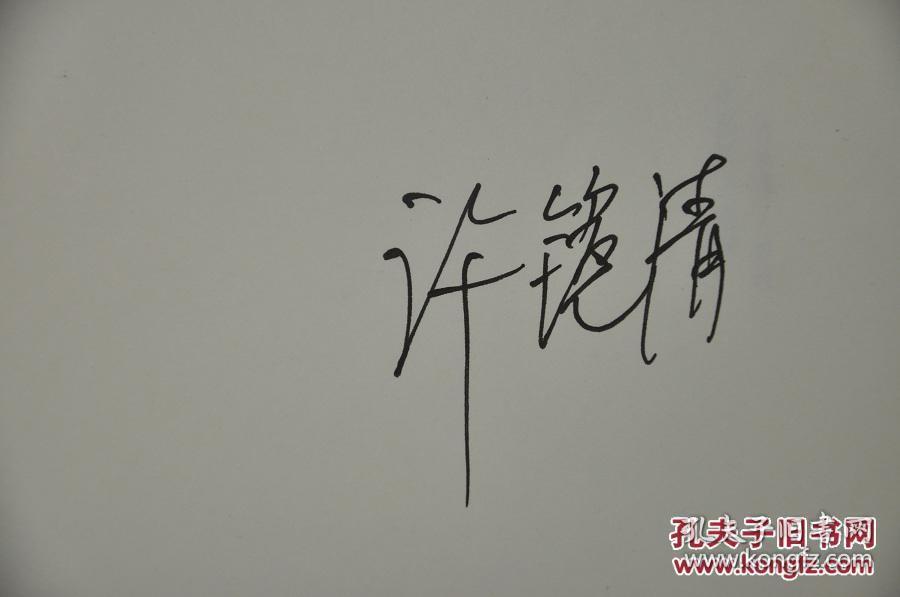 许镜清
孔夫子旧书网
www.kongfz.com